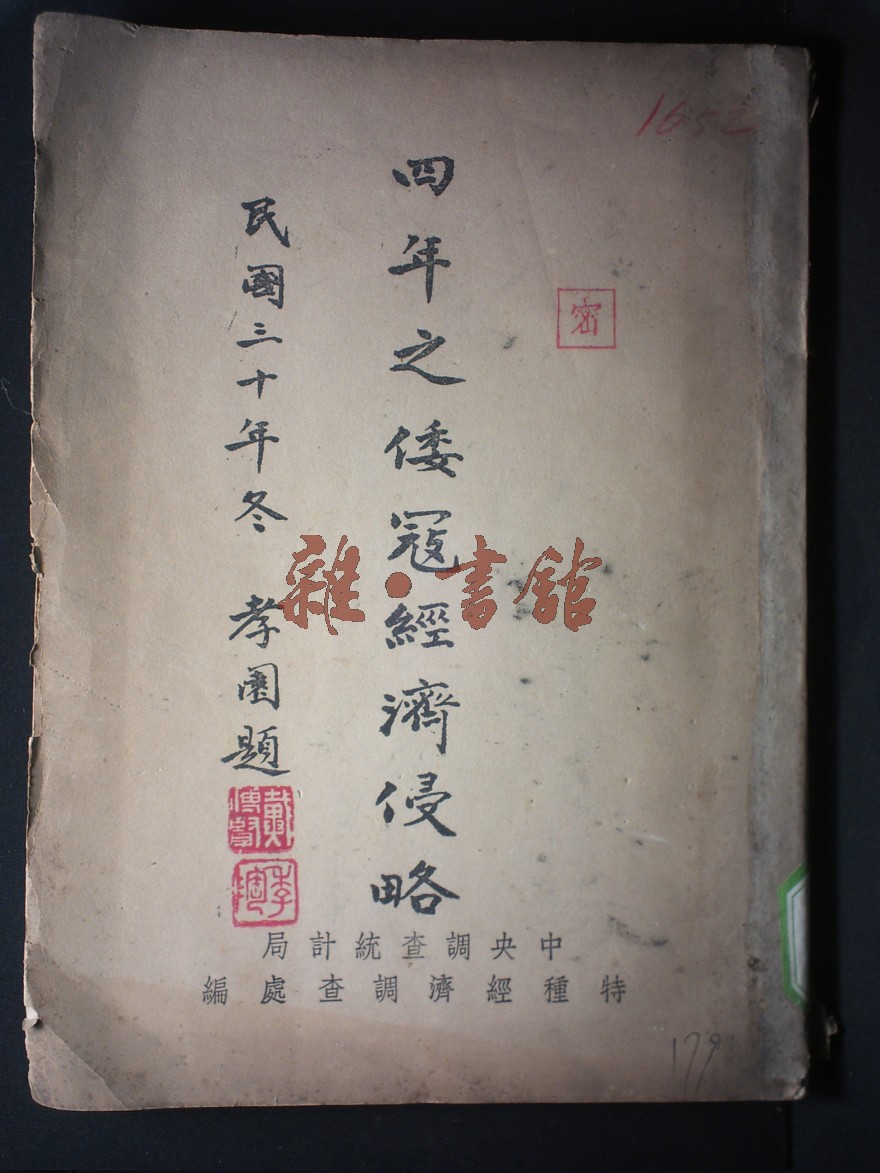 1652
密
四年之倭寇經濟侵略
民國三十年冬 孝園題
戴傳賢
季陶
雜·書館
中央調查統計局
特種經濟調查處編
179